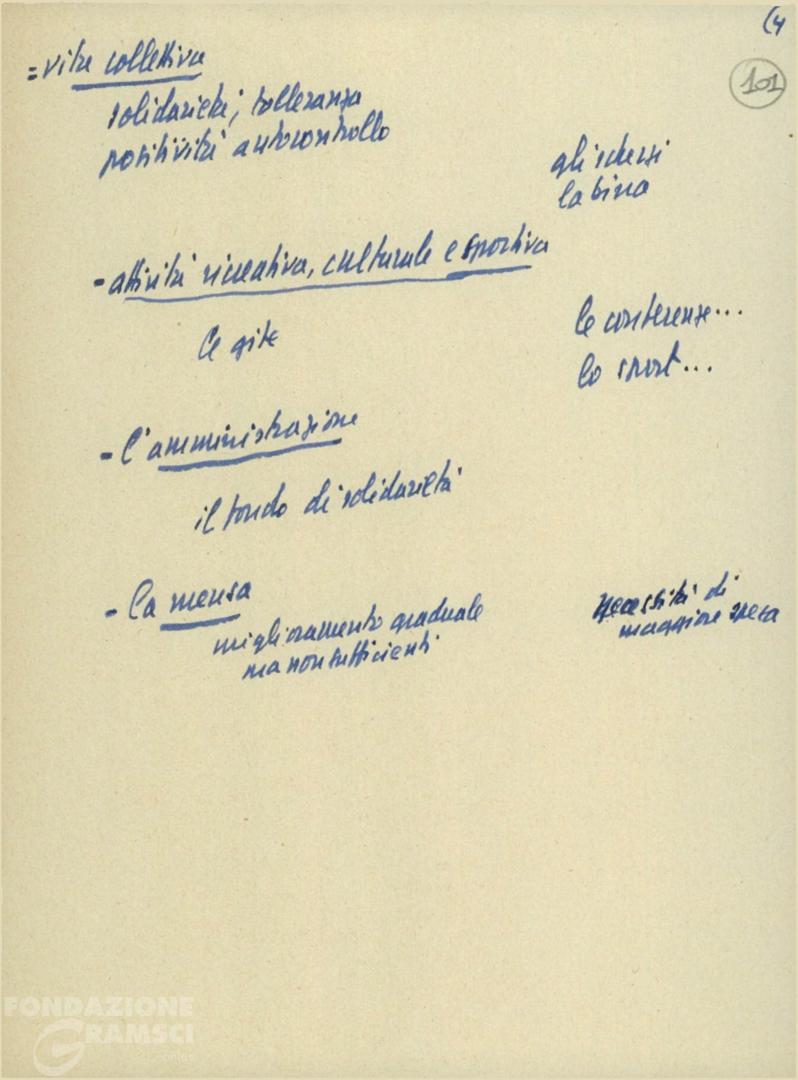 (4
101
= vita collettiva
solidarietà, tolleranza
positività autocontrollo
gli scherzi
la birra
- attività ricreativa, culturale e sportiva
le gite
le conferenze...
lo sport...
- l'amministrazione
il fondo di solidarietà
- la mensa
miglioramento graduale
ma non sufficienti
necessità di
maggiore spesa
FONDAZIONE
GRAMSCI
onlus